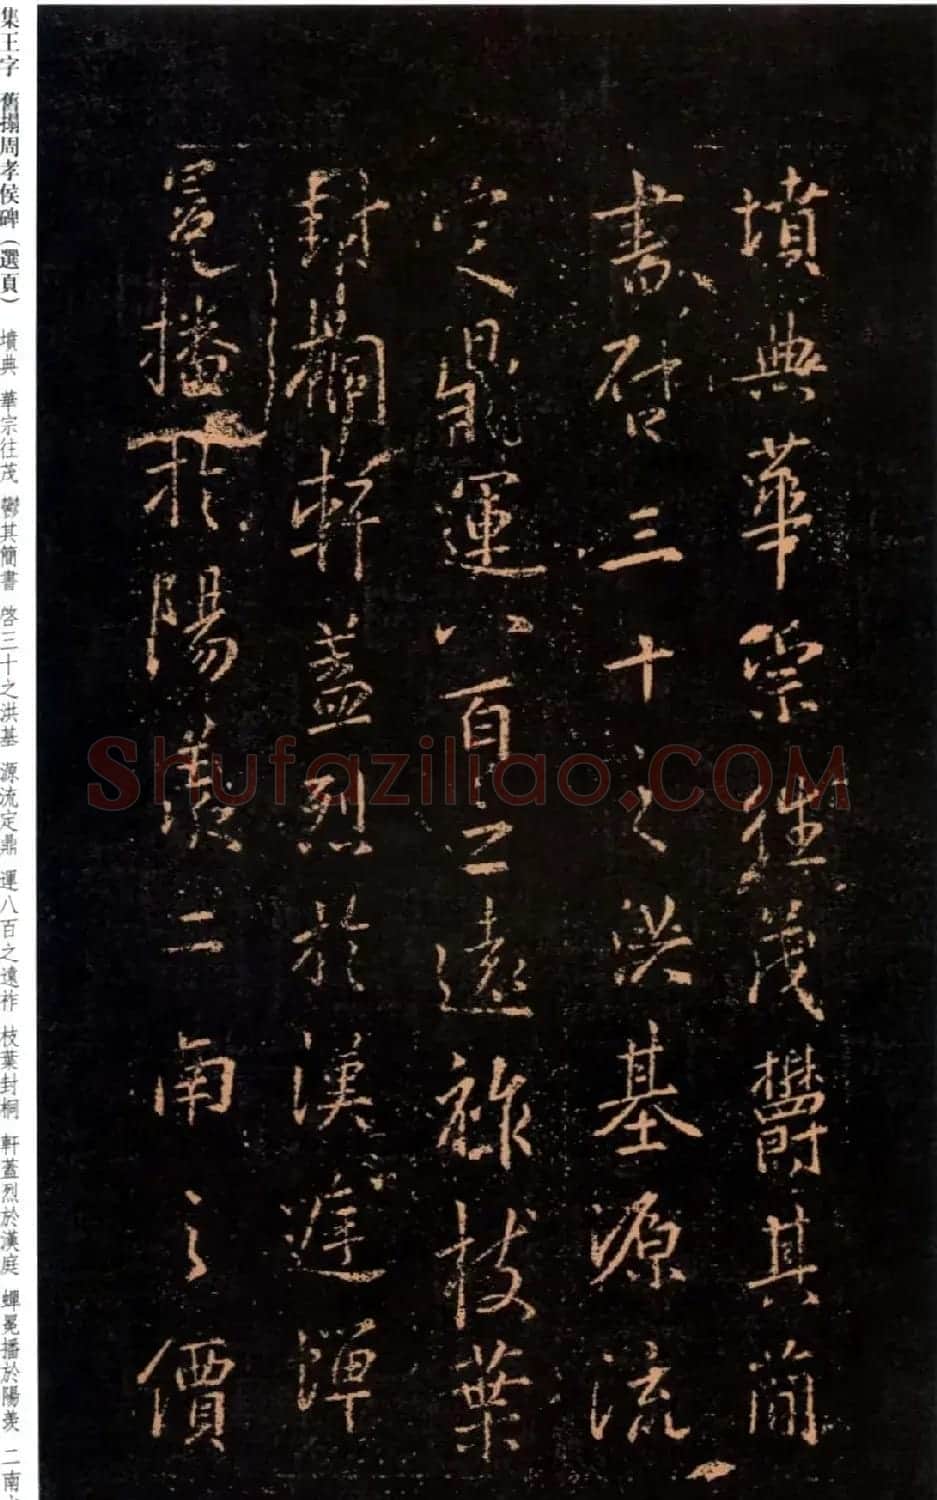 墳典華宗往茂鬱其簡
書啓三十之洪基源流
定鼎運八百之遠祚枝葉
封桐軒蓋烈於漢庭蟬
冕播於陽羨二南之價
集王字 舊搨周孝侯碑（選頁） 墳典 華宗往茂 鬱其簡書 啓三十之洪基 源流定鼎 運八百之遠祚 枝葉封桐 軒蓋烈於漢庭 蟬冕播於陽羨 二南
Shufaziliao.COM